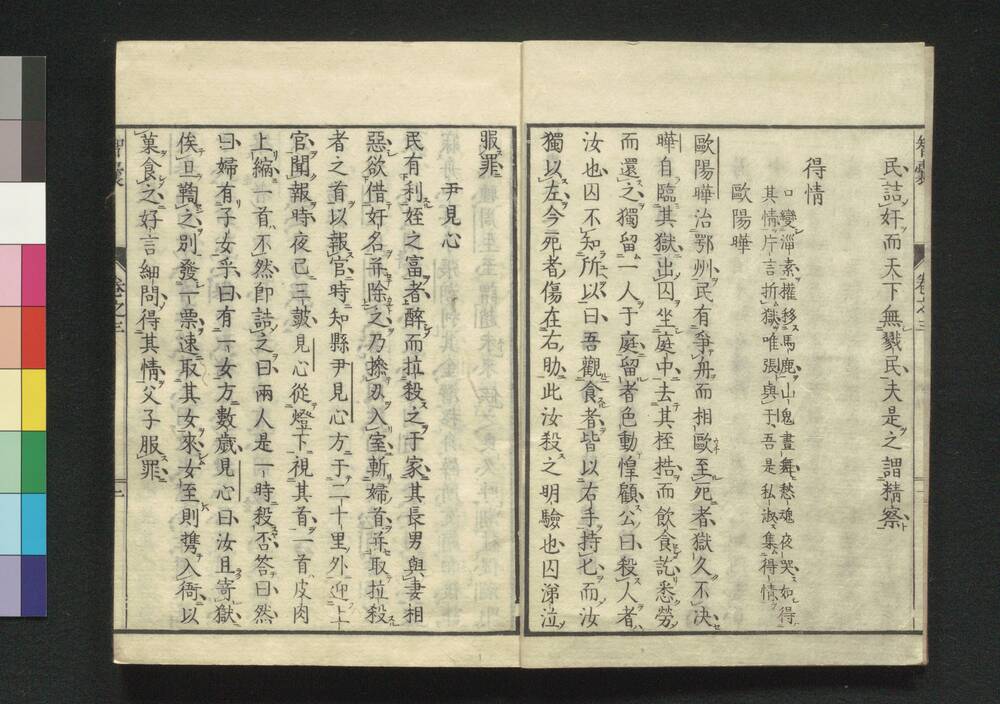 民詰奸而天下無戮民夫是之謂精察
得情
口變淄素權移馬鹿山鬼晝舞愁魂夜哭如得
其情片言折獄唯張與于吾是私淑集得情
歐陽曄
歐陽曄治鄂州民有爭舟而相毆至死者獄久不決
曄自臨其獄出囚坐庭中去其桎梏而飲食訖悉勞
而還之獨留一人于庭留者色動惶顧公曰殺人者
汝也囚不知所以曰吾觀食者皆以右手持匕而汝
獨以左今死者傷在右肋此汝殺之明驗也囚涕泣
服罪
尹見心
民有利姪之富者醉而拉殺之于家其長男與妻相
惡欲借奸名并除之乃操刃入室斬婦首并取拉殺
者之首以報官時知縣尹見心方于二十里外迎上
官聞報時夜已三鼓見心從燈下視其首一首皮肉
上縮一首不然卽詰之曰兩人是一時殺否答曰然
曰婦有子女乎曰有一女方數歲見心曰汝且寄獄
俟旦鞫之別發一票速取其女來女至則携入衙以
菓食之好言細問得其情父子服罪
智囊
卷之三